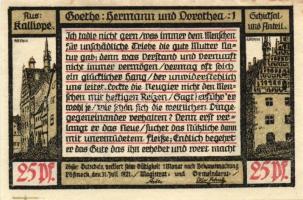 Aus:
Kalliope.
Goethe: Hermann und Dorothea: 1
Schicksal
und Anteil.
Ich tadle nicht gern, was immer dem Menschen
für unschädliche Triebe die gute Mutter Na-
tur gab; denn was Verstand und Vernunft
nicht immer vermögen, vermag oft solch
ein glücklicher Hang, der unwiderstehlich
uns leitet. Lockte die Neugier nicht den Men-
schen mit heftigen Reizen, Sagt! erführ' er
wohl je, wie schön sich die weltlichen Dinge
gegeneinander verhalten? Denn erst ver-
langt er das Neue, suchet das Nützliche dann
mit unermüdetem Fleiße; Endlich begehrt
er das Gute, das ihn erhebet und wert macht
25 Pf.
Dieser Gutschein verliert seine Gültigkeit 1 Monat nach Bekanntmachung
Pößneck, den 11. Juli 1921. Magistrat und Gemeinderat
25 Pf.